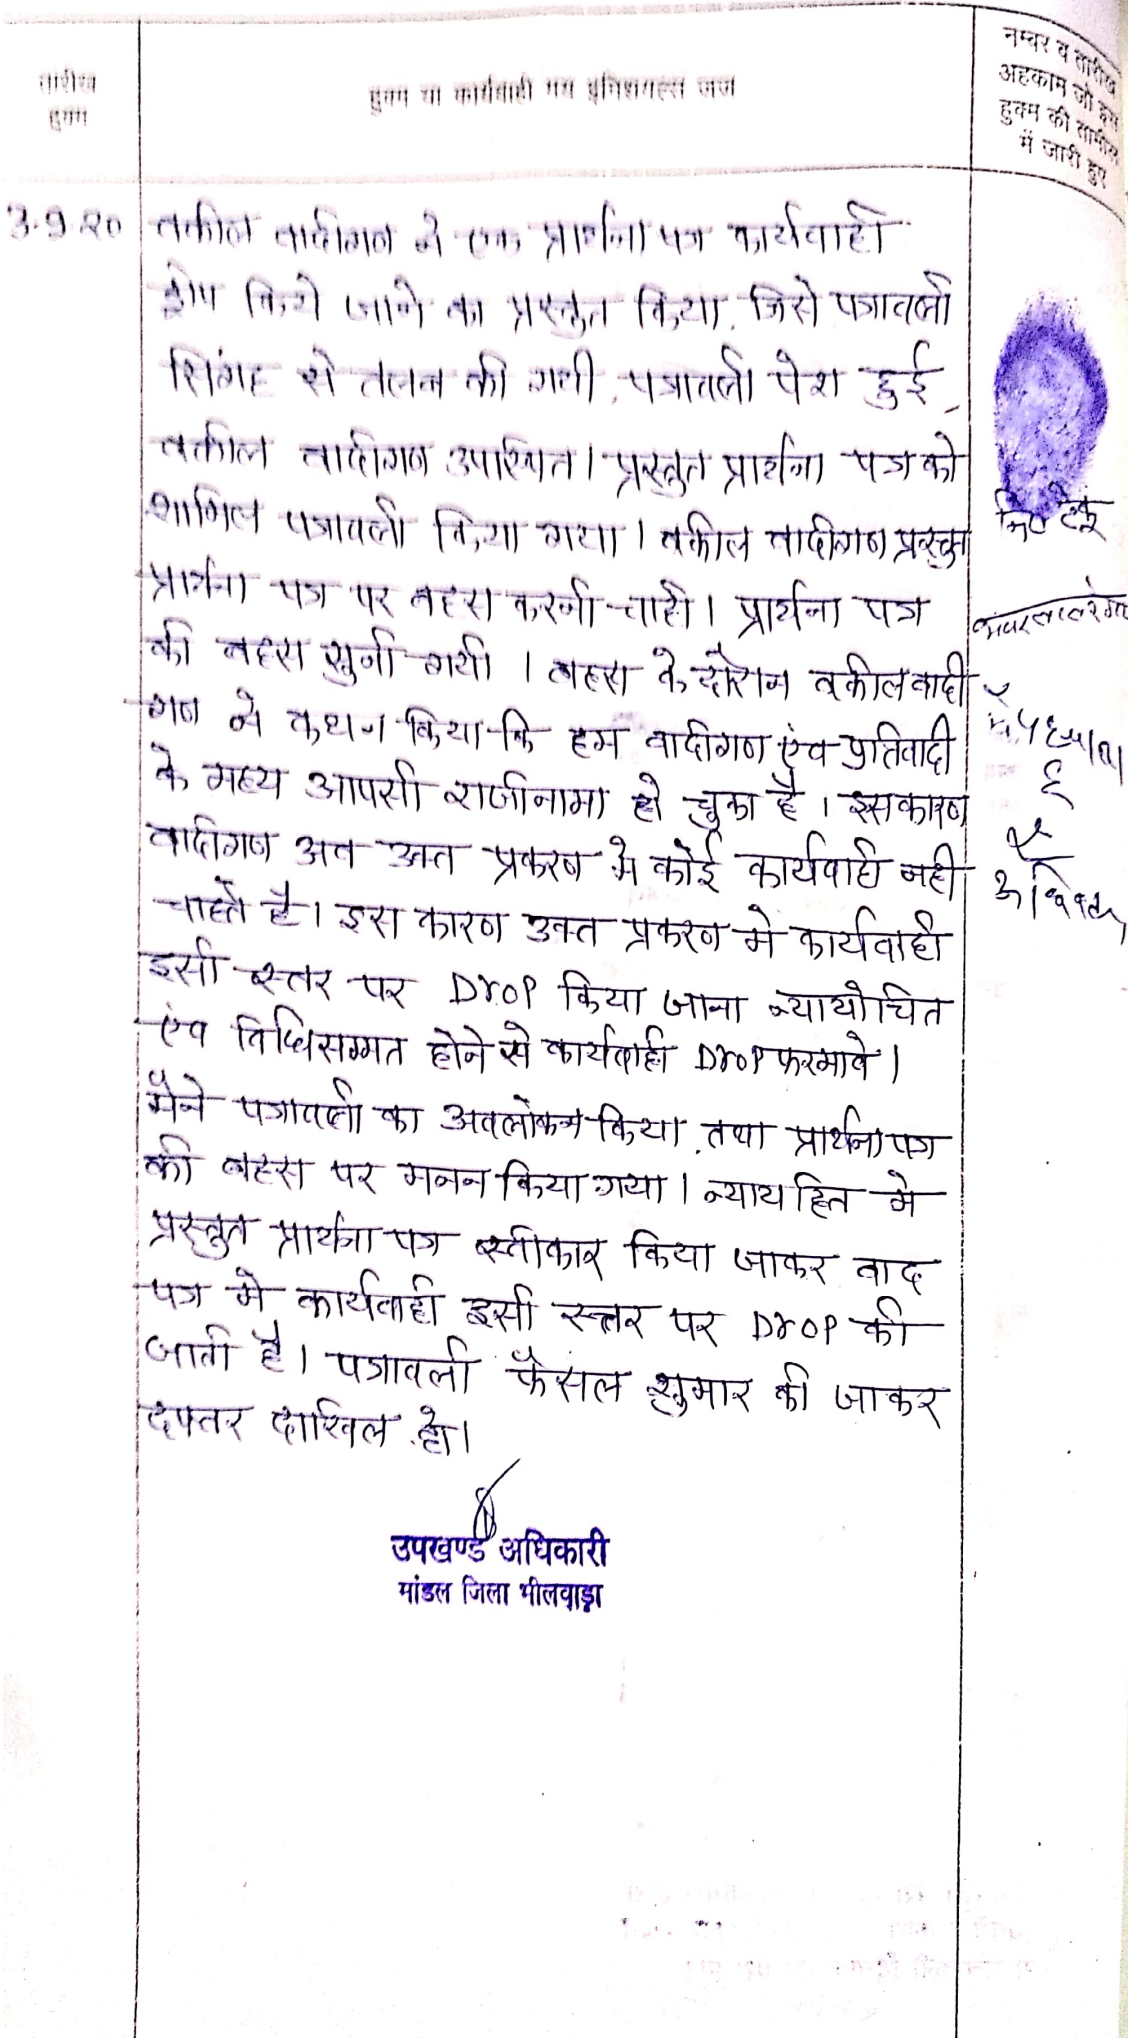 तारीख
हुक्म
हुक्म या कार्यवाही मय इनिशियल्स जज
नम्बर व तारीख
अहकाम जो इस
हुक्म की तामील
में जारी हुए
3.9.20
वकील वादीगण ने एक प्रार्थना पत्र कार्यवाही
ड्रोप किये जाने का प्रस्तुत किया, जिसे पत्रावली
सिंगह से तलब की गयी, पत्रावली पेश हुई,
वकील वादीगण उपस्थित। प्रस्तुत प्रार्थना पत्र को
शामिल पत्रावली किया गया। वकील वादीगण प्रस्तुत
प्रार्थना पत्र पर बहस करनी चाही। प्रार्थना पत्र
की बहस सुनी गयी। बहस के दौरान वकील वादी
गण ने कथन किया कि हम वादीगण एंव प्रतिवादी
के मध्य आपसी राजीनामा हो चुका है। इस कारण
वादीगण अब उक्त प्रकरण मे कोई कार्यवाही नही
चाहते है। इस कारण उक्त प्रकरण मे कार्यवाही
इसी स्तर पर Drop किया जाना न्यायोचित
एंव विधिसम्मत होने से कार्यवाही Drop फरमावे।
मैने पत्रावली का अवलोकन किया, तथा प्रार्थना पत्र
की बहस पर मनन किया गया। न्याय हित मे
प्रस्तुत प्रार्थना पत्र स्वीकार किया जाकर वाद
पत्र मे कार्यवाही इसी स्तर पर Drop की
जाती है। पत्रावली फैसल शुमार की जाकर
दफ्तर दाखिल हो।
उपखण्ड अधिकारी
मांडल जिला भीलवाड़ा